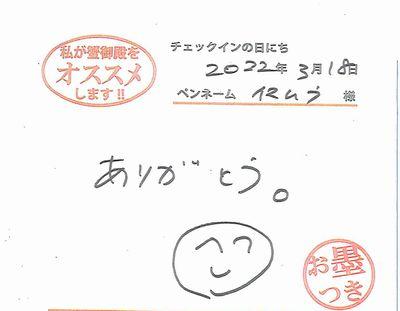 私が蟹御殿を
オススメ
します!!
チェックインの日にち
2022年3月18日
ペンネーム 様
ありがとう。
お墨
つき